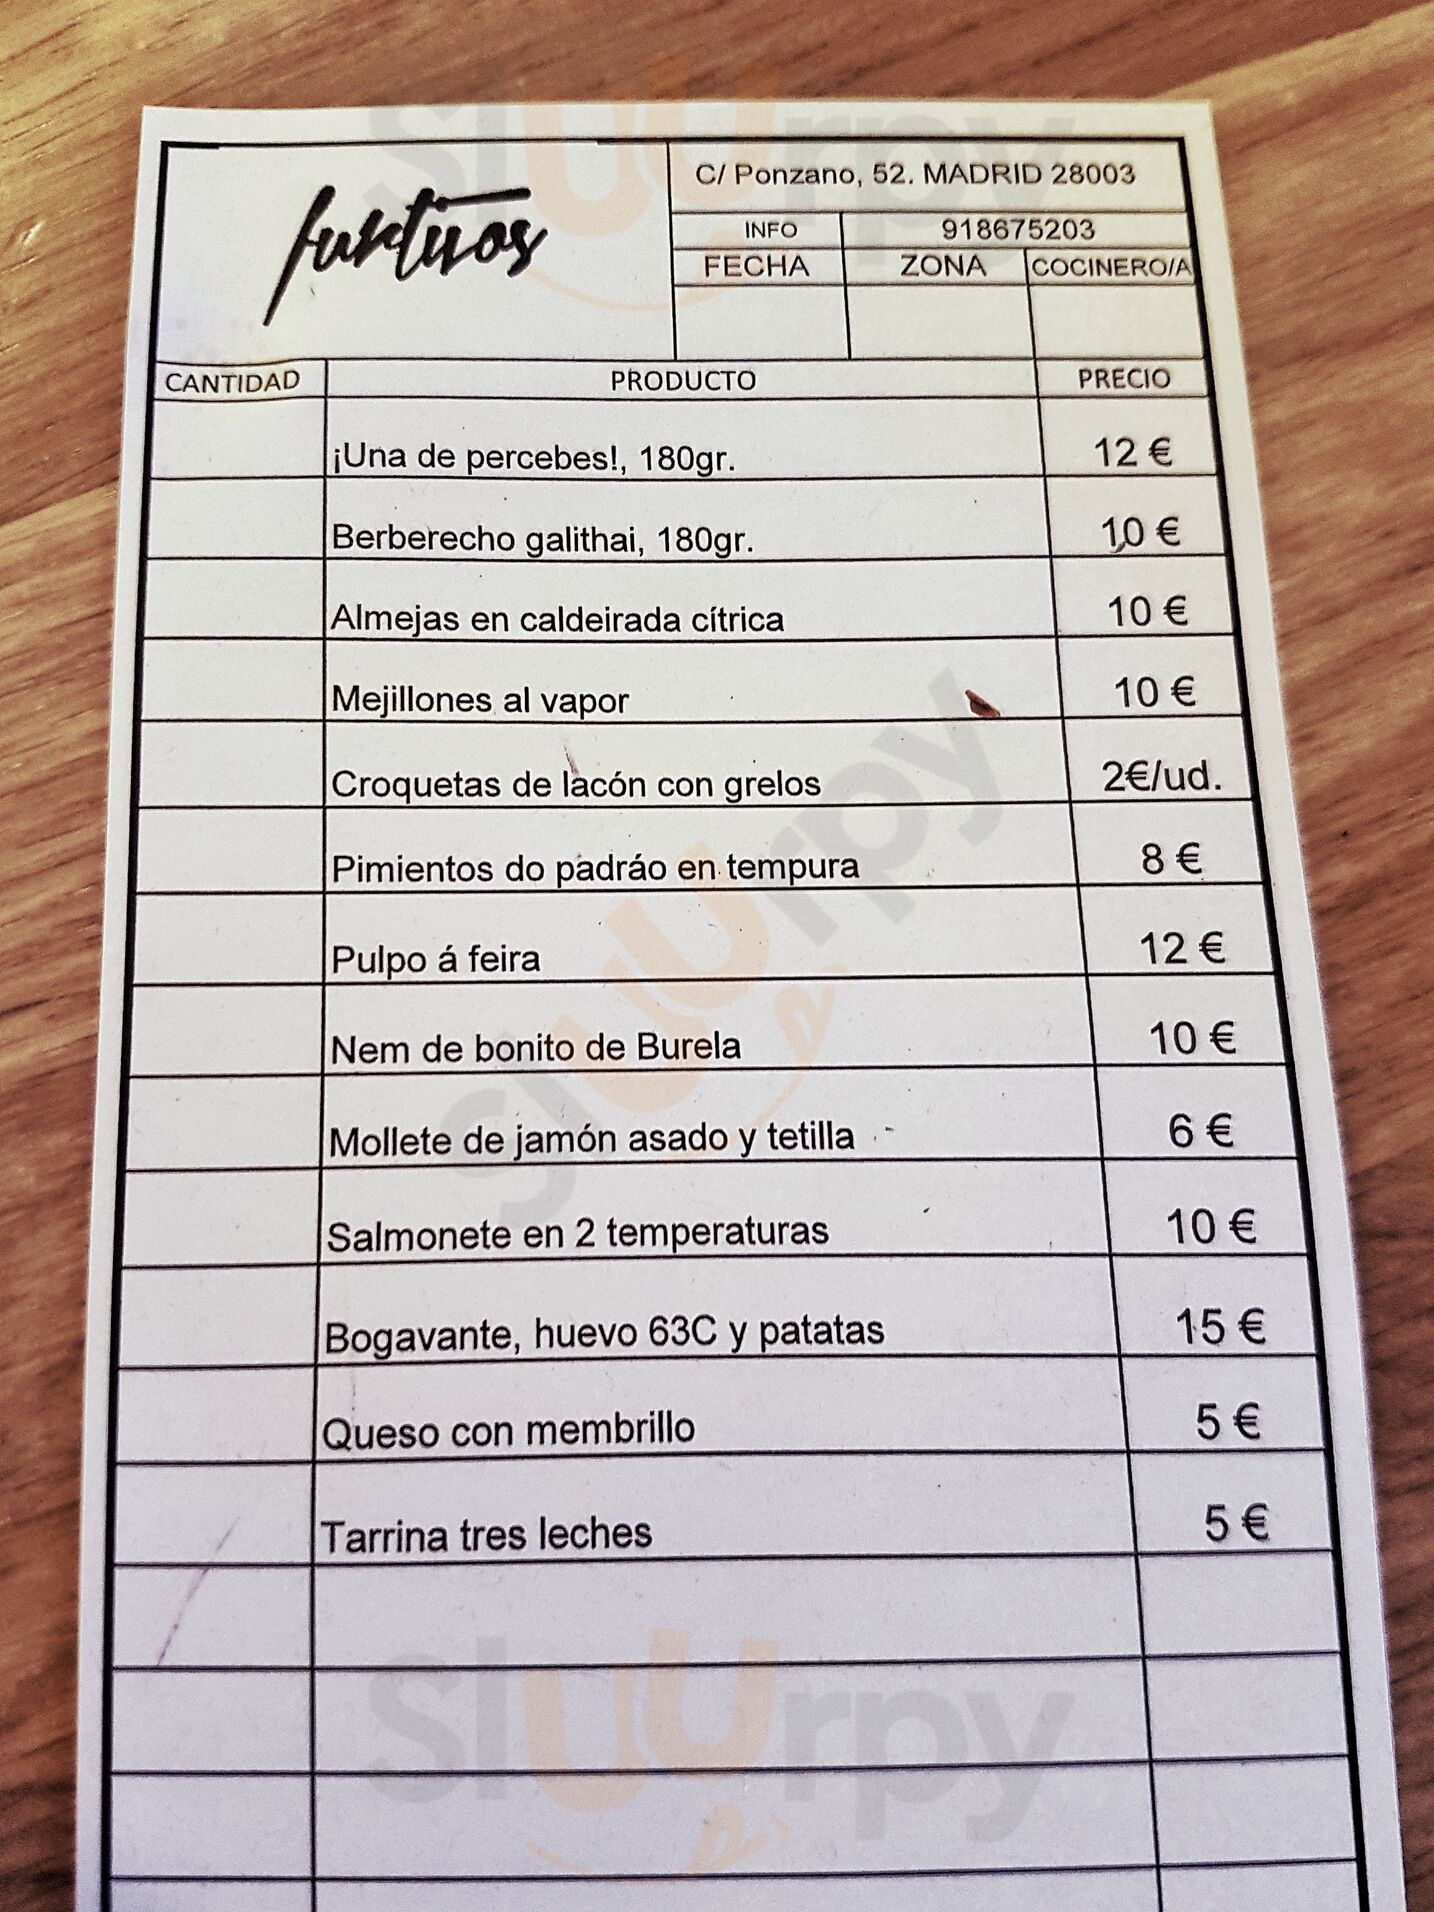 furtivos
C/ Ponzano, 52. MADRID 28003
INFO 918675203
FECHA ZONA COCINERO/A
CANTIDAD PRODUCTO PRECIO
¡Una de percebes!, 180gr. 12 €
Berberecho galithai, 180gr. 10 €
Almejas en caldeirada cítrica 10 €
Mejillones al vapor 10 €
Croquetas de lacón con grelos 2€/ud.
Pimientos do padráo en tempura 8 €
Pulpo á feira 12 €
Nem de bonito de Burela 10 €
Mollete de jamón asado y tetilla 6 €
Salmonete en 2 temperaturas 10 €
Bogavante, huevo 63C y patatas 15 €
Queso con membrillo 5 €
Tarrina tres leches 5 €
sluurpy
sluurpy
sluurpy